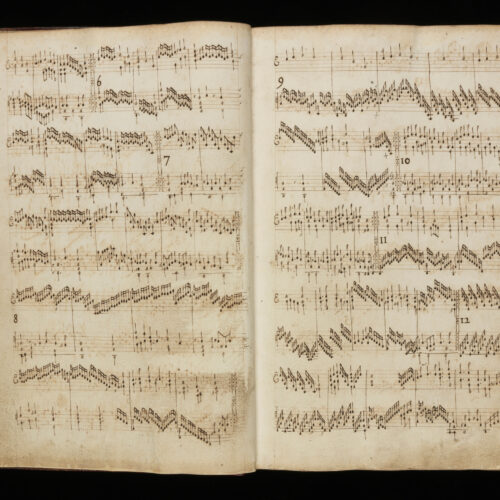 6
7
8
9
10
11
12